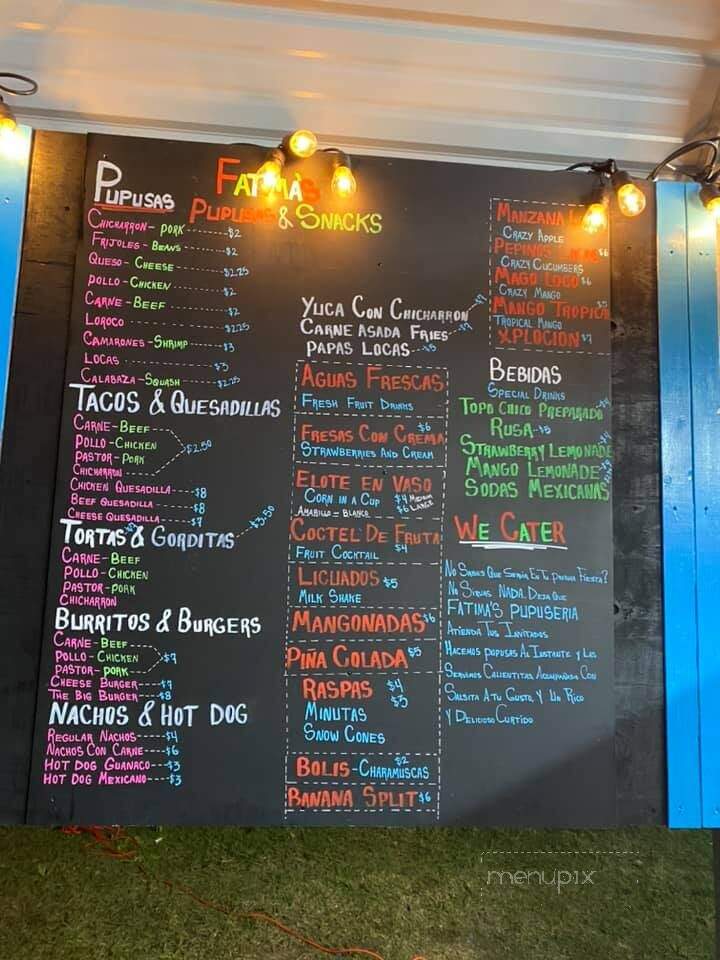 FATIMA'S
PUPUSAS & SNACKS
PUPUSAS
CHICHARRON - PORK ------- $2
FRIJOLES - BEANS ------- $2
QUESO - CHEESE ------- $2.25
POLLO - CHICKEN ------- $2
CARNE - BEEF ------- $2
LOROCO ------- $2.25
CAMARONES - SHRIMP ---- $3
LOCAS ------- $3
CALABAZA - SQUASH ------- $2.25
TACOS & QUESADILLAS
CARNE - BEEF
POLLO - CHICKEN
PASTOR - PORK $2.50
CHICHARRON
CHICKEN QUESADILLA ---- $8
BEEF QUESADILLA ---- $8
CHEESE QUESADILLA ---- $7
TORTAS & GORDITAS $3.50
CARNE - BEEF
POLLO - CHICKEN
PASTOR - PORK
CHICHARRON
BURRITOS & BURGERS
CARNE - BEEF
POLLO - CHICKEN $9
PASTOR - PORK
CHEESE BURGER ---- $7
THE BIG BURGER ---- $8
NACHOS & HOT DOG
REGULAR NACHOS ---- $4
NACHOS CON CARNE --- $6
HOT DOG GUANACO --- $3
HOT DOG MEXICANO --- $3
YUCA CON CHICHARRON
CARNE ASADA FRIES
PAPAS LOCAS --- $5
AGUAS FRESCAS
FRESH FRUIT DRINKS
FRESAS CON CREMA $6
STRAWBERRIES AND CREAM
ELOTE EN VASO
CORN IN A CUP $4 MEDIUM
AMARILLO - BLANCO $6 LARGE
COCTEL DE FRUTA
FRUIT COCKTAIL $4
LICUADOS $5
MILK SHAKE
MANGONADAS $6
PIÑA COLADA $5
RASPAS $4
MINUTAS $5
SNOW CONES
BOLIS - CHARAMUSCAS $2
BANANA SPLIT $6
MANZANA
CRAZY APPLE
PEPINOS $6
CRAZY CUCUMBERS
MAGO LOCO $6
CRAZY MANGO
MANGO TROPICA $5
TROPICAL MANGO
XPLOCION $7
BEBIDAS
SPECIAL DRINKS
TOPO CHICO PREPARADO
RUSA - $5
STRAWBERRY LEMONADE
MANGO LEMONADE
SODAS MEXICANAS
WE CATER
No Sabes Que Servir En Tu Proxima Fiesta?
No Sirvas NADA, DEJA QUE
FATIMA'S PUPUSERIA
ATIENDA TUS INVITADOS
HACEMOS PUPUSAS AL INSTANTE Y LES
SERVIMOS CALIENTITAS ACOMPAÑADAS CON
SALSITA A TU GUSTO Y UN RICO
Y DELICIOSO CURTIDO
menupix